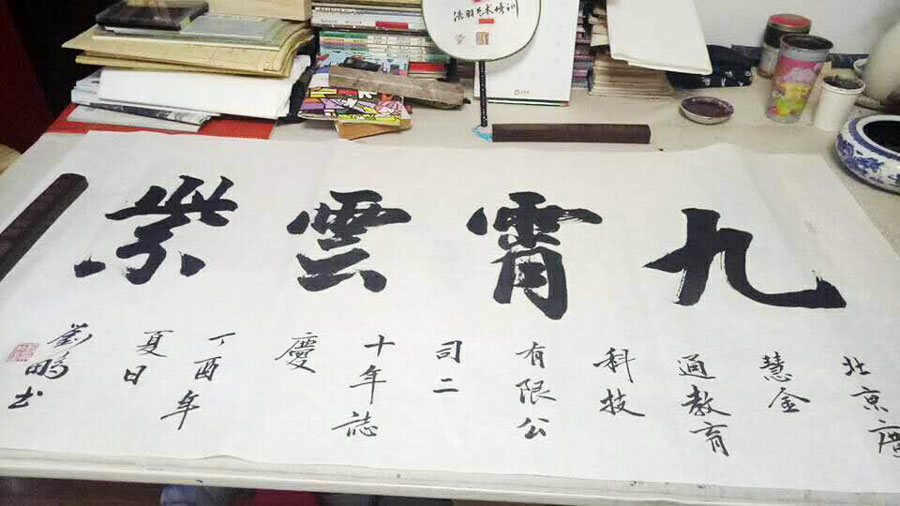 九霄雲紫
北京廣
慧金
通教育
科技
有限公
司二
十年誌
慶
丁酉年
夏日
劉鵬书
艺术培训